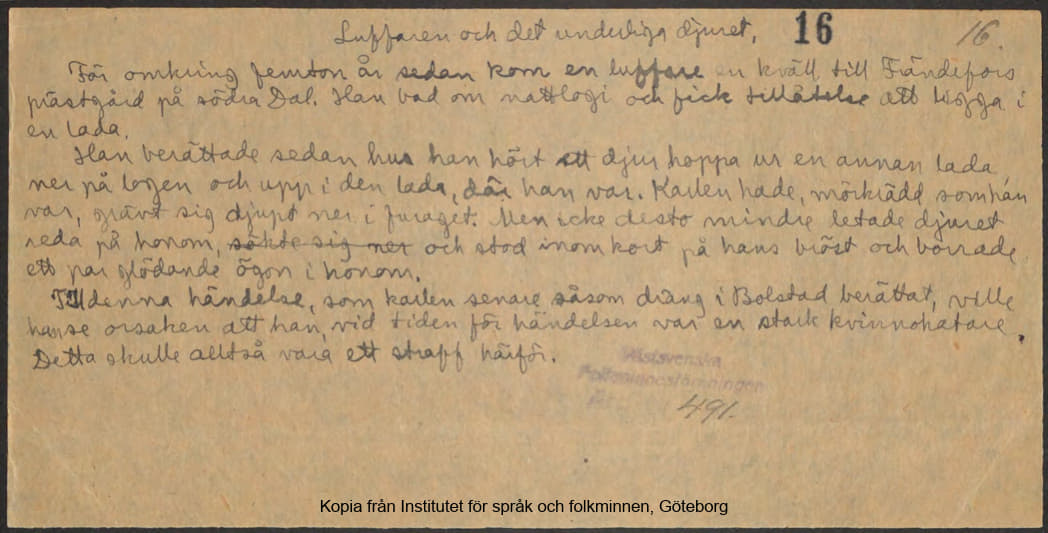 Luffaren och det underliga djuret, 16 16.
För omkring femton år sedan kom en luffare en kväll till Frändefors
prästgård på södra Dal. Han bad om nattlogi och fick tillåtelse att ligga i
en lada.
Han berättade sedan hur han hört ett djur hoppa ur en annan lada
ner på logen och upp i den lada, där han var. Karlen hade, mörkrädd som han
var, grävt sig djupt ner i furaget. Men icke desto mindre letade djuret
reda på honom, sökte sig ner och stod inom kort på hans bröst och borrade
ett par glödande ögon i honom.
Till denna händelse, som karlen senare såsom dräng i Bolstad berättat, ville
han se orsaken att han vid tiden för händelsen var en stark kvinnohatare.
Detta skulle alltså vara ett straff härför.
Västsvenska
Folkminnesföreningen
491.
Kopia från Institutet för språk och folkminnen, Göteborg